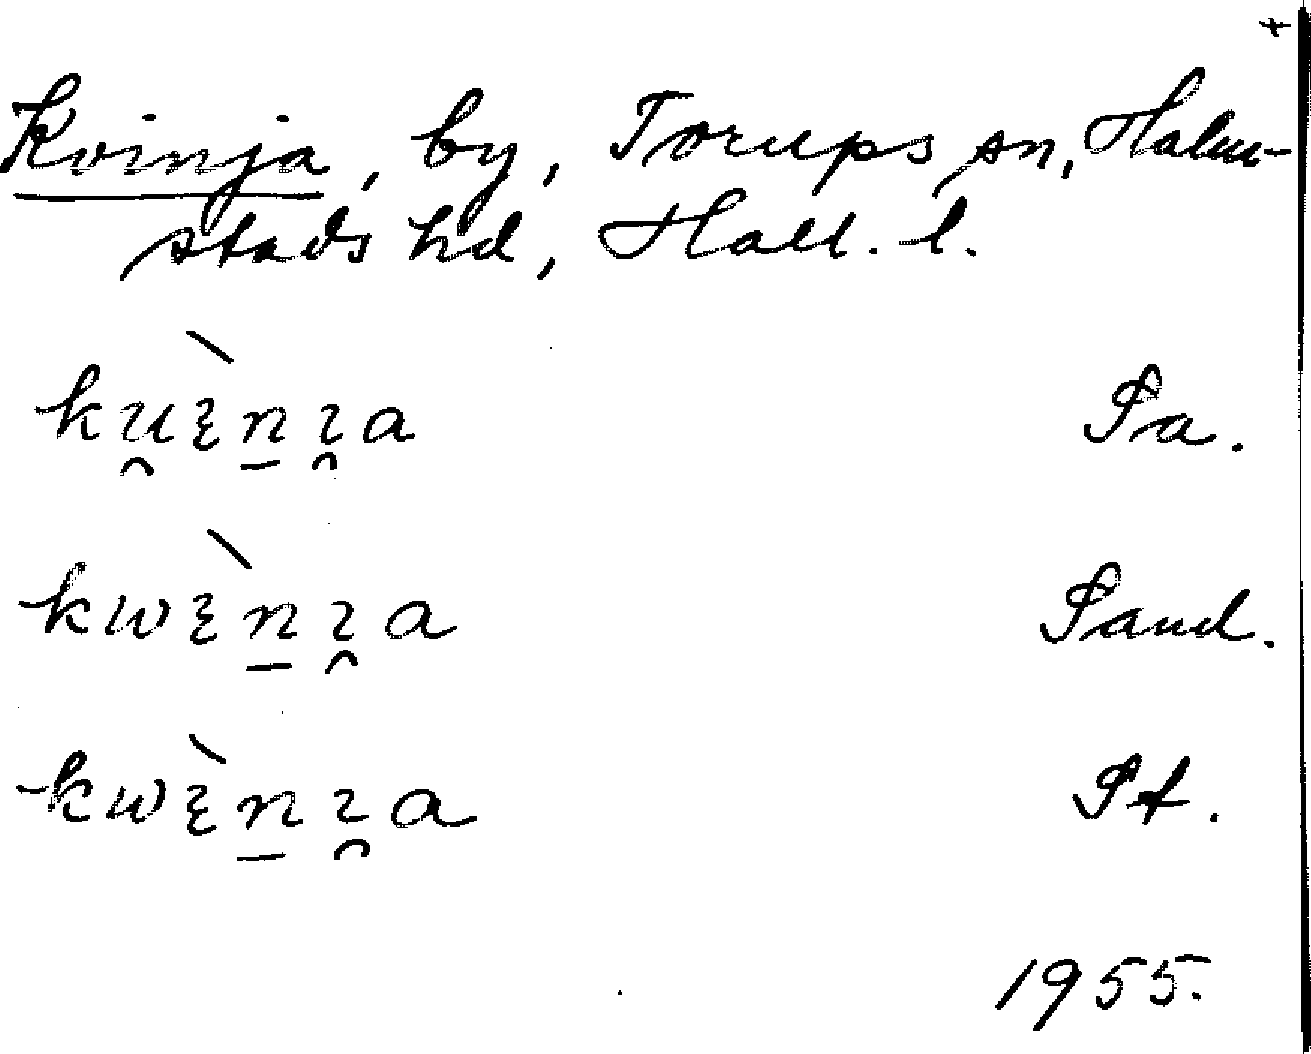 Kvinja, by, Torups sn, Halm-
stads hd, Hall. l.
ku̯ɛ̀n̠ɪ̯a Pa.
kwɛ̀n̠ɪ̯a Sand.
kwɛ̀n̠ɪ̯a
1955.